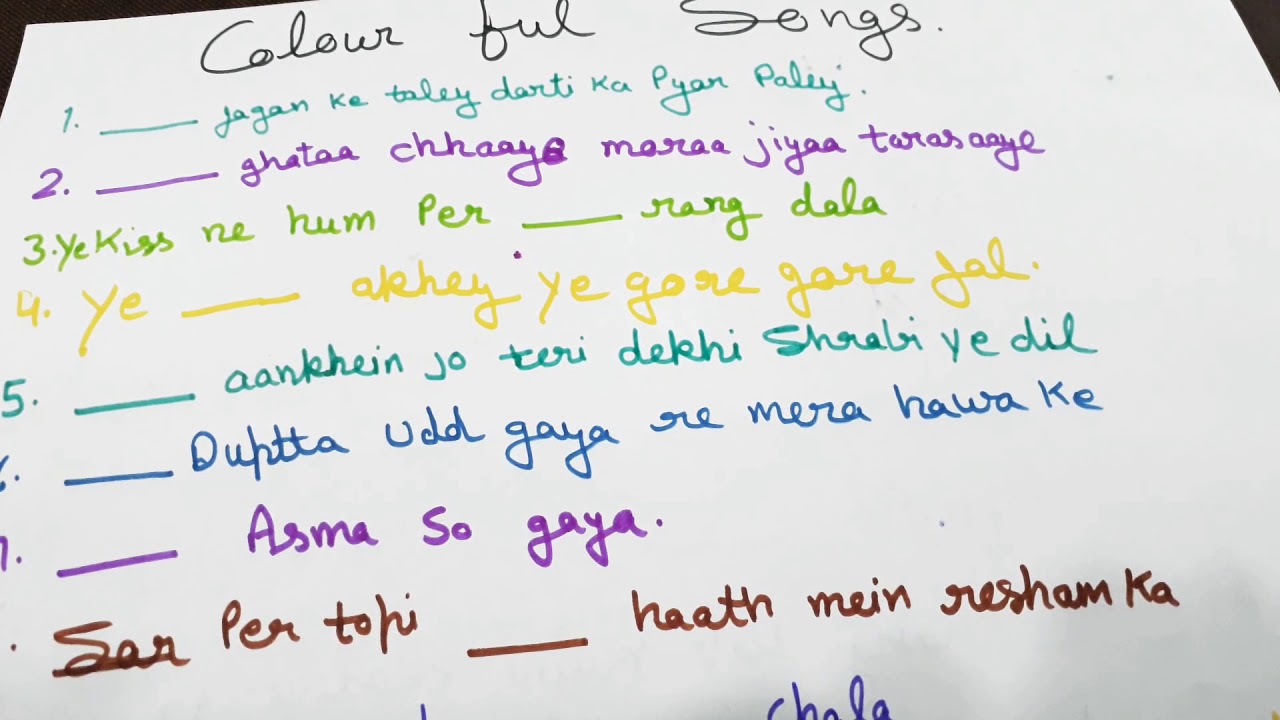 Colour ful Songs.
1. ____ Jagan ke taley darti ka Pyar Paley.
2. ____ ghataa chhaaye moraa jiyaa tarasaaye
3. Ye Kiss ne hum Per ____ rang dala
4. Ye ____ akhey ye gore gore Jal.
5. ____ aankhein jo teri dekhi Shrabi ye dil
____ Duptta Udd gaya re mera hawa Ke
____ Asma So gaya.
Sar Per topi ____ haath mein resham Ka
chala